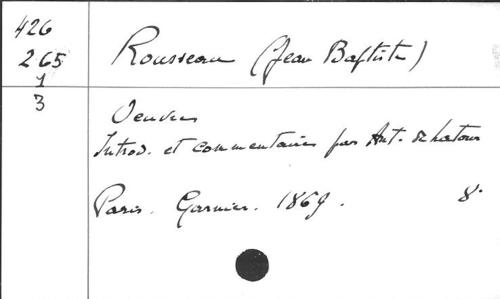 426
265
1
3
Rousseau (Jean Baptiste)
Oeuvres
Introd. et commentaires par Ant. de Latour
Paris. Garnier. 1869. 8°